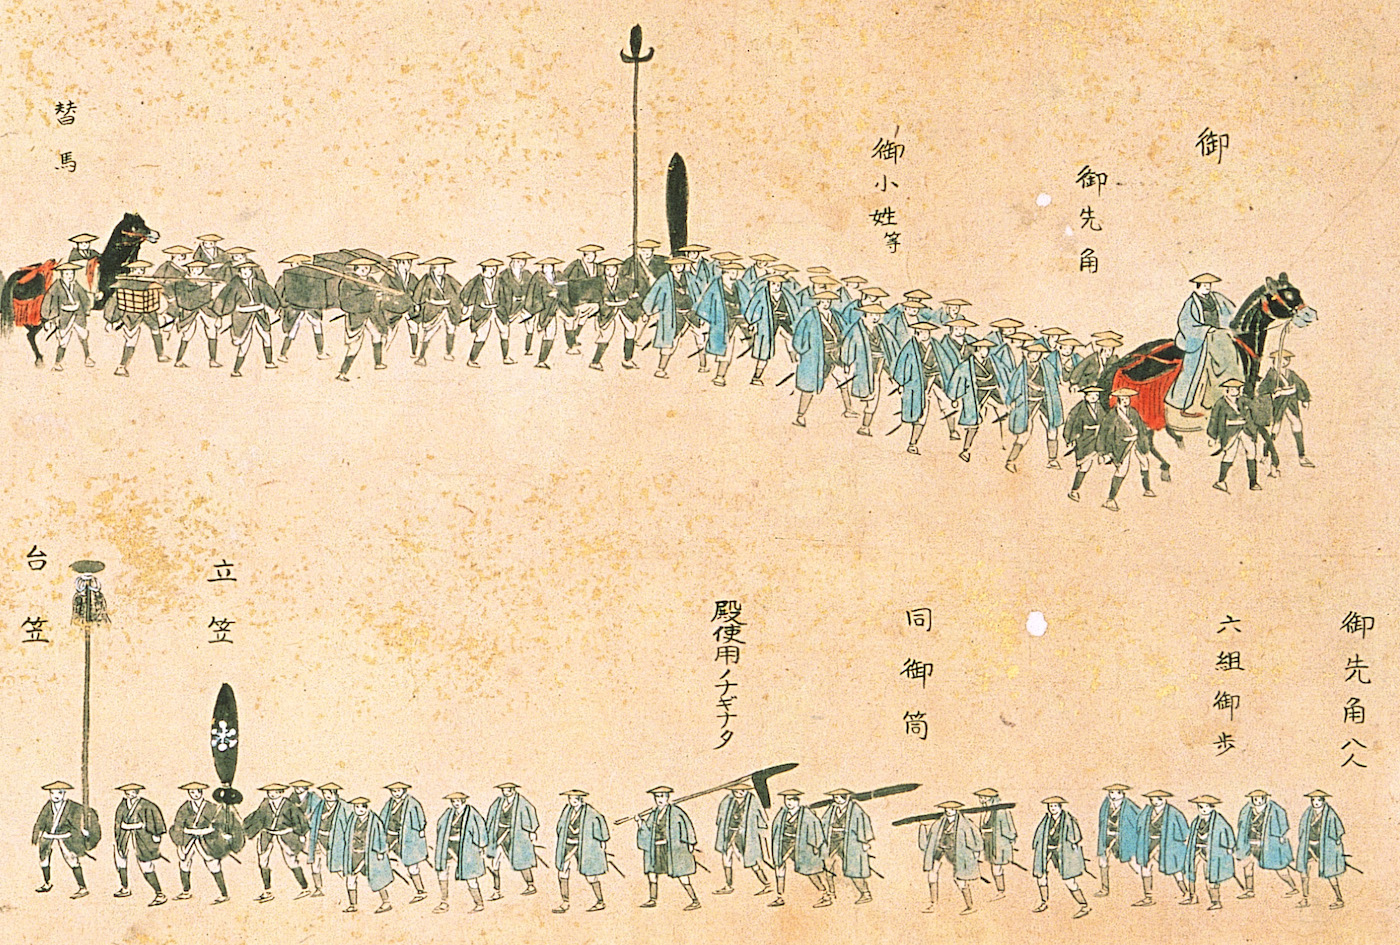 御
御先角
御小姓等
替馬
御先角八人
六組御歩
同御筒
殿使用ノナギナタ
立笠
台笠